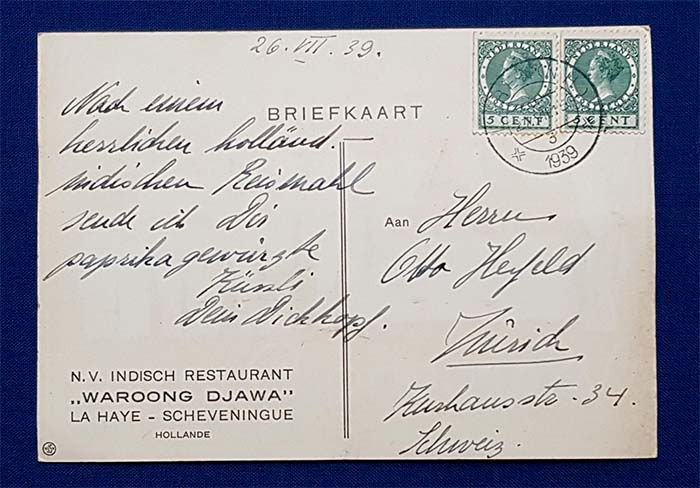 26.VII.39.
NEDERLAND NEDERLAND
5 CENT 5 CENT
1939
BRIEFKAART
Nach einem
herrlichen holländ.
indischen Reismahl
sende ich Dir
paprikagewürzte
Küssli
Dein Dickkopf.
Aan Herrn
Otto
Zürich
Kurhausstr. 34.
Schweiz.
N.V. INDISCH RESTAURANT
„WAROONG DJAWA"
LA HAYE - SCHEVENINGUE
HOLLANDE